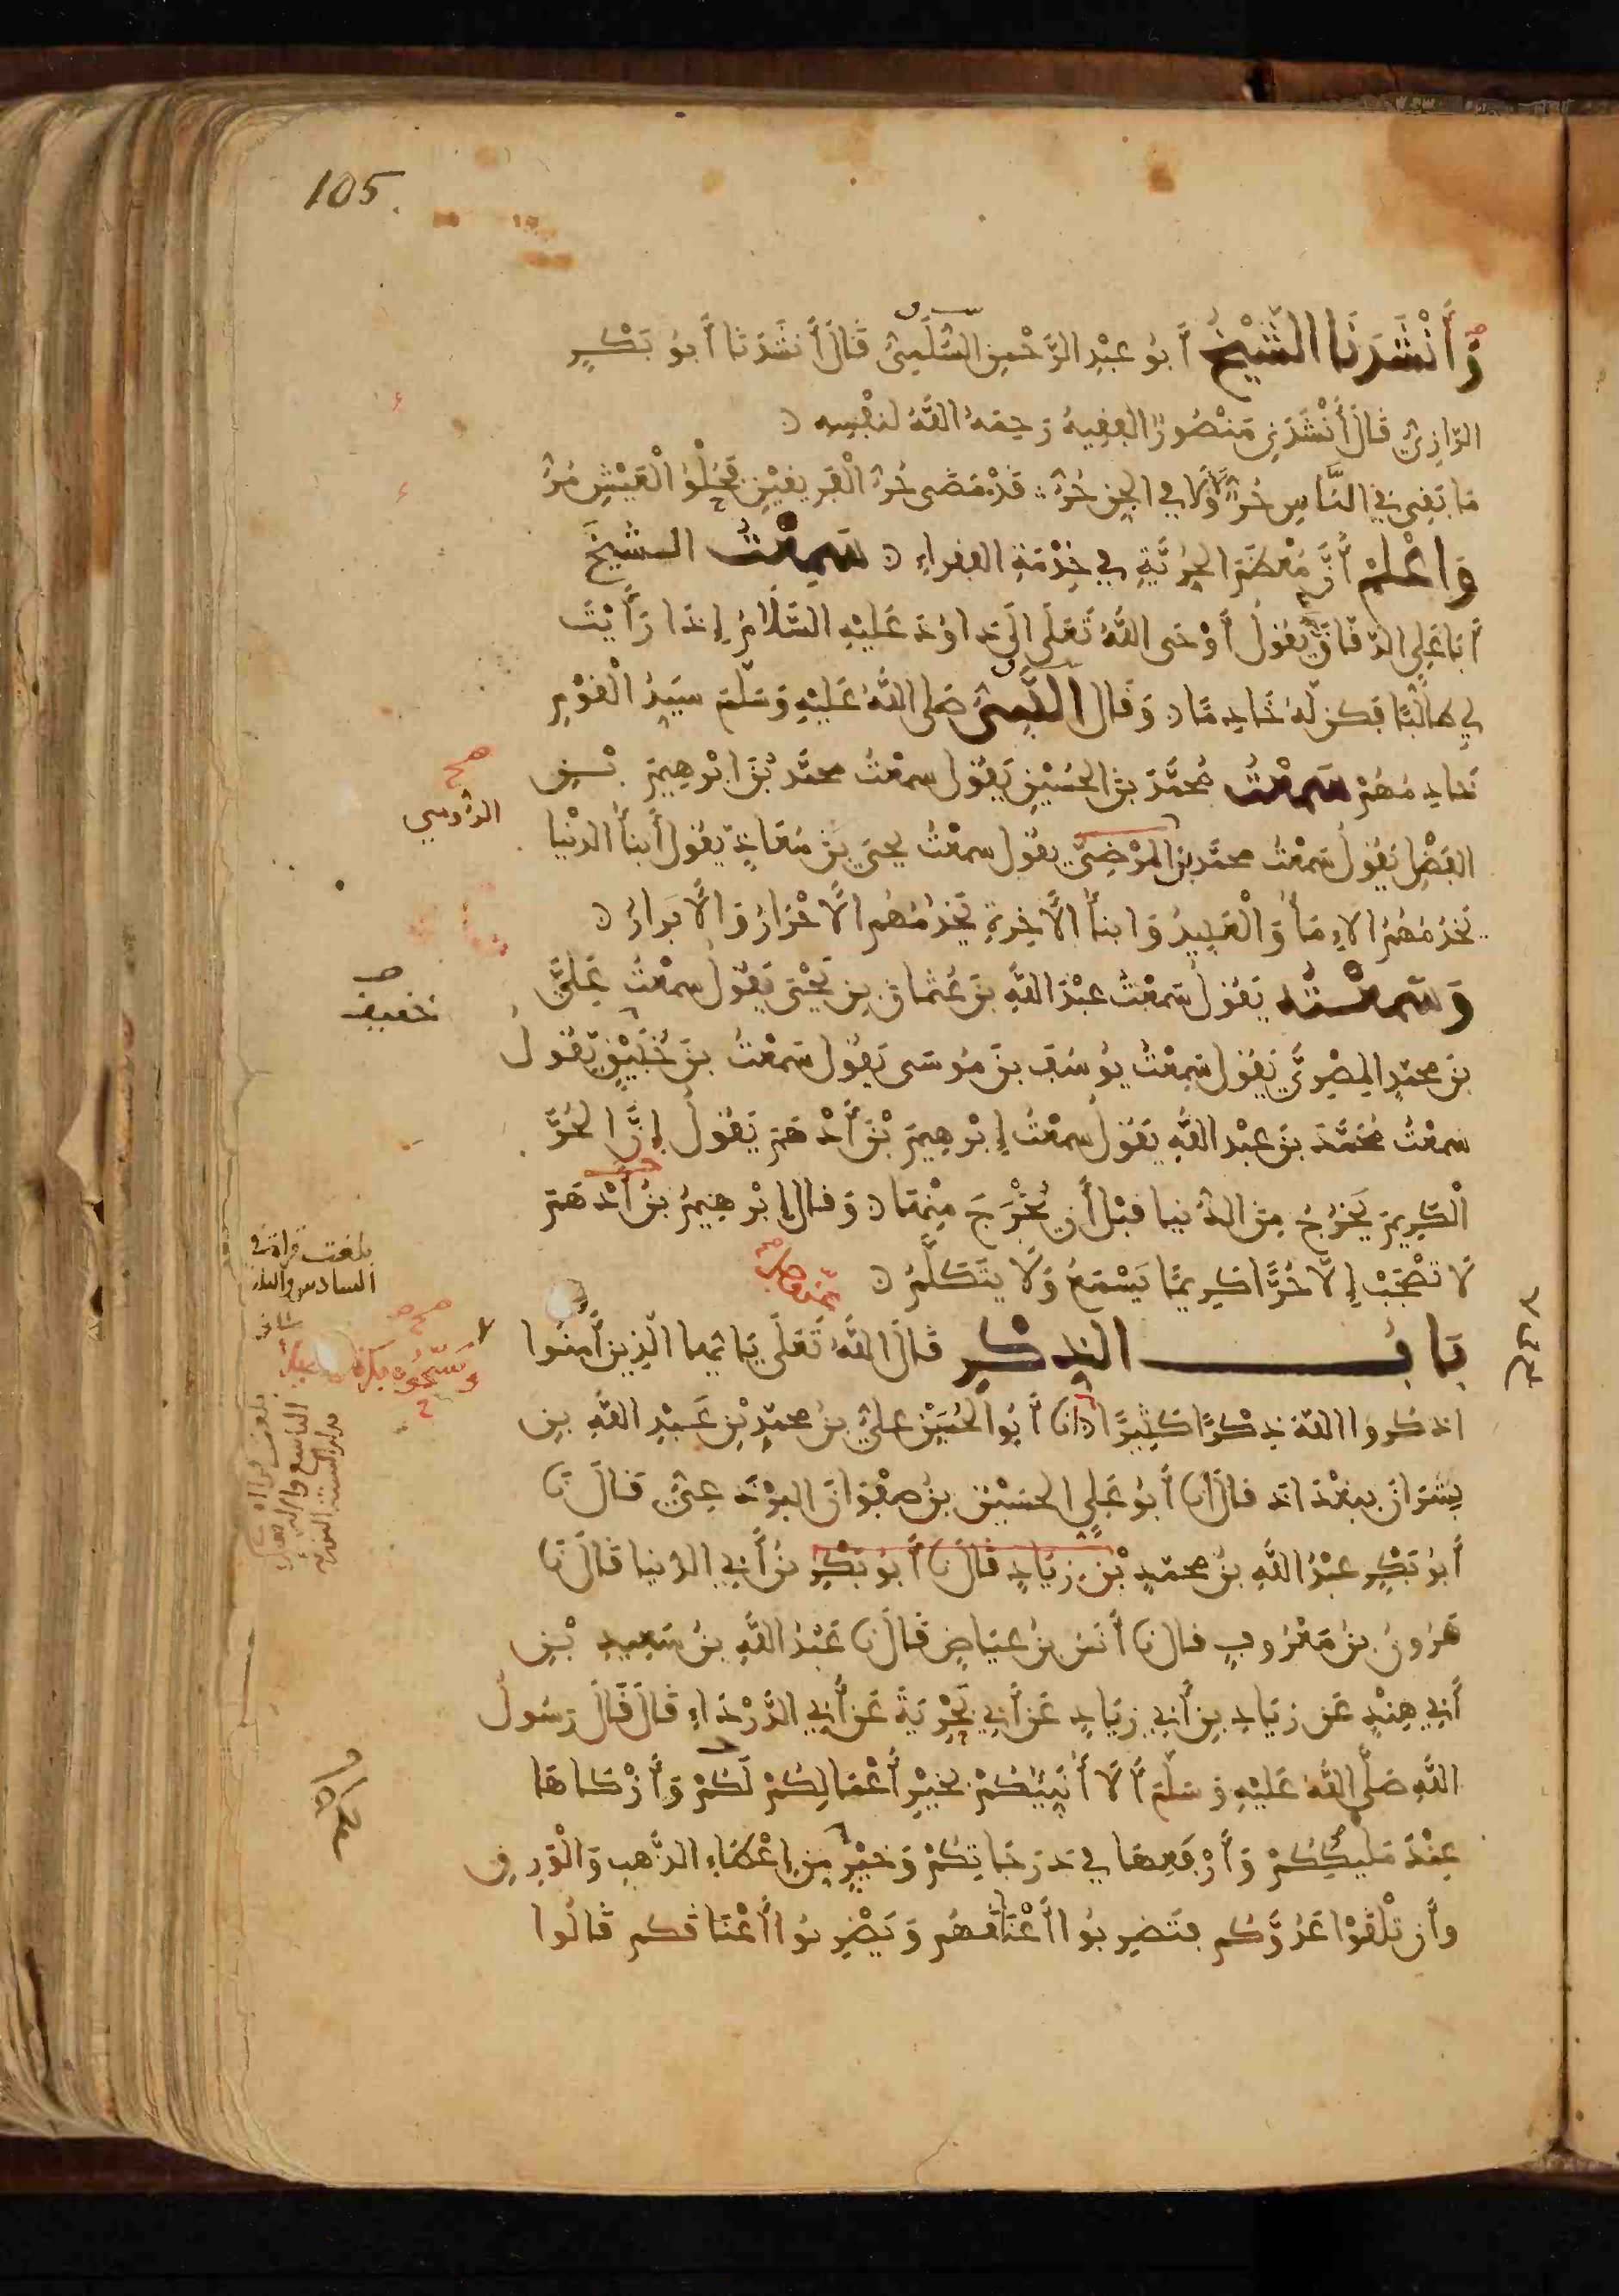 105.
وَأَنْشَدَنَا الشَّيْخُ أَبُو عَبْدِ الرَّحْمٰنِ السُّلَمِيُّ قَالَ أَنشَدَنَا أَبُو بَكْرٍ
الرَّازِيُّ قَالَ أَنْشَدَنِي مَنْصُورٌ الفقِيهُ رَحِمَهُ اللَّهُ لنَفْسِهِ
مَا بَقِيَ في النَّاسِ حُرٌّ لَا وَلَا في الجِنِّ حُرٌّ قَدْ مَضَى حُرُّ الْفَرِيقَيْنِ فَحُلْوُ الْعَيْشِ مُرُّ
وَاعْلَمْ أَنَّ مُعْظَمَ الحُرِّيَّةِ في خِدْمَةِ الفقراءِ سَمِعْتُ الشيخَ
أَبَا عَلِي الدَّقَّاقَ يَقُولُ أَوْحَى اللَّهُ تَعَلَى إلَى دَاوُدَ عَلَيْهِ السَّلَامُ إِذَا رَأَيْتَ
لِي طَالِبًا فَكُن لَهُ خَادِمًا وَقَالَ النَّبِيُّ صَلى اللَّهُ عَلَيْهِ وَسَلَّمَ سَيِّدُ الْقَوْمِ
خَادِمُهُمْ سَمِعْتُ مُحَمَّدَ بنَ الحُسَيْنِ يَقُول سمِعْتُ محمَّد بْنَ ابْرهِيمَ بْنِ
الفَضْلِ يَقُولُ سَمِعْتُ محمَّد بن الرُّومِيِّ يقُول سمِعْتُ يحيَى بنَ مُعَاذٍ يَقُولُ أَبنَأُ الدنْيا
تَخْدُمُهُمُ الاِمَأُ وَالْعَبِيدُ وَابنَأُ الآخِرَةِ يَخْدُمُهُم الأَحْرَارُ وَالأَبرارُ
وَسَمِعْتُهُ يَقُولُ سَمِعْتُ عبْدَ اللَّهِ بنَ عُثمَانَ بنِ يَحْيَى يَقُولُ سمِعْتُ عَلِيَّ
بنَ محمدٍ المِصْرِيَّ يَقُول سَمِعْتُ يُوسُفَ بنَ مُوسَى يَقُول سَمِعْتُ بنَ خُبَيْقٍ يَقُولُ
سمِعْتُ مُحَمَّدَ بنَ عبْدِ اللَّهِ يَقُول سمعْتُ إِبْرهِيمَ بْنَ أَدْهَمَ يَقُولُ إِنَّ الحُرَّ
الْكَرِيمَ يَخْرُجُ مِنَ الدُّنيا قبْلَ أَن يُخْرَجَ مِنْهَا وَقال إِبْرهِيمُ بنُ أَدْهَمَ
لَا تَصْحَبْ إِلَّا حُرًّا كَرِيمًا يَسْمَعُ وَلَا يَتَكَلَّمُ
بَابُ الذِكْرِ قَالَ اللَّهُ تَعَلَى يَا أَيُّهَا الَّذِينَ أَمَنُوا
اذكُرُوا اللَّهَ ذِكْرًا كَثِيرًا انا أَبُو الحُسَيْن عليُّ بنُ محمّدِ بْنِ عَبْدِ اللَّهِ بنِ
بِشْرَانَ ببغْدَاد قالَ انا أَبُو عَلي الحسَيْنُ بنُ صفْوَانَ البَرْدَعِيُّ قَالَ نا
أَبُو بَكْر عبْدُ اللَّهِ بنُ محمدٍ بْنِ زيَادٍ قَالَ نا أَبُو بَكْرِ بنُ أَبِي الدنيا قَالَ نا
هَرُونُ بنُ مَعْرُوفٍ قال نا أَنَسُ بنُ عِيَاضٍ قَالَ نا عَبْدُ اللَّهِ بنُ سَعِيدِ بْنِ
أَبِي هِنْدٍ عَن زِيَادِ بنِ أَبِي زيَادٍ عَنْ أَبِي بَحْرِيَةَ عَنْ أَبِي الدَّرْدَاءِ قَالَ قَالَ رَسُولُ
اللَّهِ صَلَّى اللَّهُ عَلَيْهِ وَسَلَّمَ أَلَا أُنَبِّئُكُمْ بخَيْرِ أَعْمَالِكُمْ لَكُمْ وَأَزْكَاهَا
عِنْدَ مَلِيكِكُمْ وَأَرْفَعِهَا في دَرَجَاتِكُمْ وَخيْرٍ مِن اعْطَاءِ الذَّهبِ وَالْوَرِقِ
وأَن تَلْقَوْا عَدُوَّكُم فتَضرِبُوا أَعْنَاقَهُم وَيَضْرِبُوا أَعْنَاقَكم قَالُوا
صح
الدُّومي
تخفيف
بلغت قراءة في
السادس والثلاثين
صح
وَسَبِّحُوهُ بُكْرَةً وأَصِيلًا